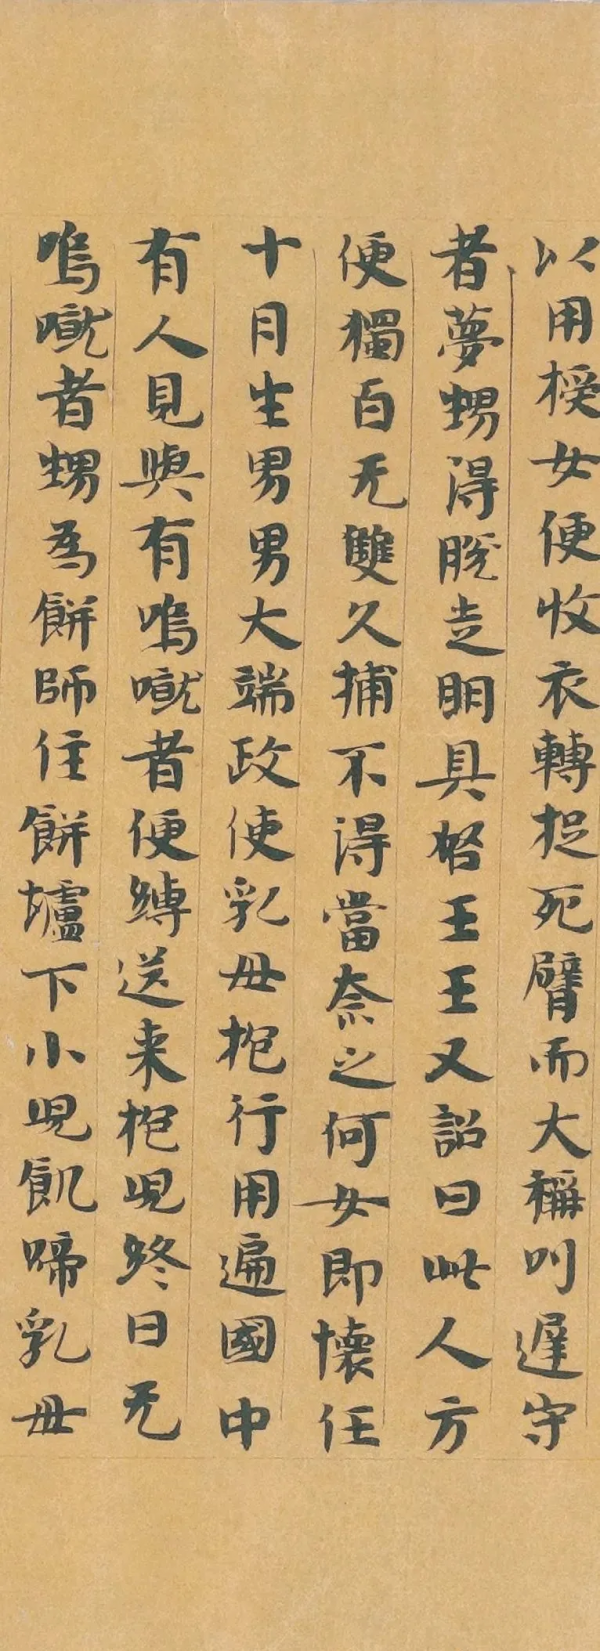 以用授女便收衣轉捉死臂而大稱叫遅守
者夢甥得脱走明具啓王王又詔曰此人方
便獨百无雙久捕不得當奈之何女即懷任
十月生男男大端政使乳母抱行用遍國中
有人見與有嗚噈者便縛送来抱児終日无
嗚噈者甥為餅師住餅壚下小児飢啼乳母